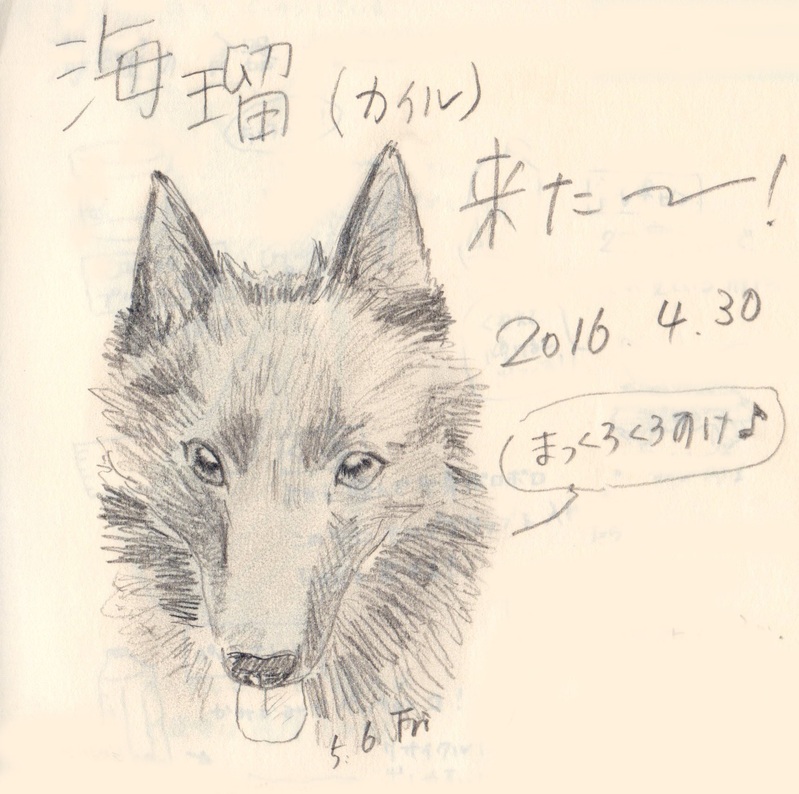 海瑠(カイル)
来た〜!
2016.4.30
まっくろくろすけ♪
5.6 Fri